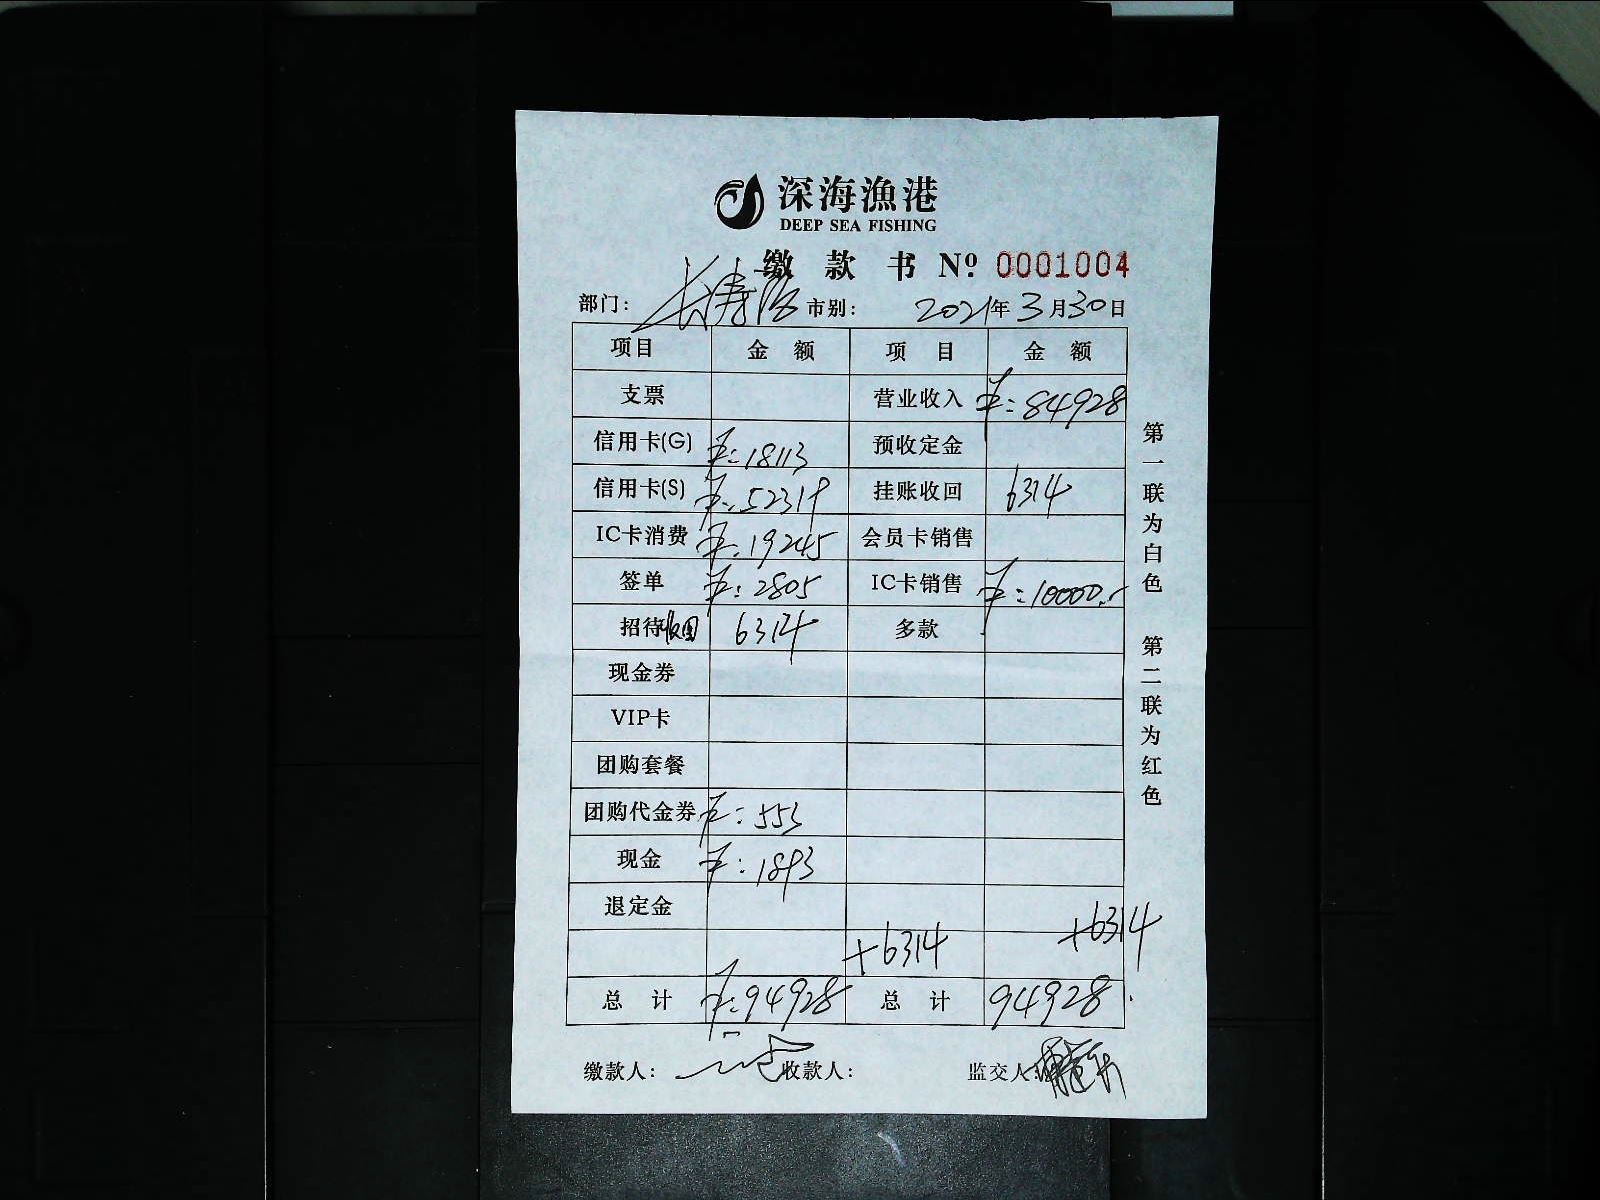 深海漁港
DEEP SEA FISHING
缴款书 Nº 0001004
部门: 长寿路 市别: 2021年3月30日
项目 金额 项目 金额
支票 营业收入 ¥:84928
信用卡(G) ¥:18113 预收定金
信用卡(S) ¥:52319 挂账收回 6314
IC卡消费 ¥:19245 会员卡销售
签单 ¥:2805 IC卡销售 ¥:10000.-
招待收回 6314 多款
现金券
VIP卡
团购套餐
团购代金券 ¥:553
现金 ¥:1893
退定金
+6314 +6314
总计 ¥:94928 总计 94928.
缴款人: 收款人: 监交人:
第一联为白色 第二联为红色